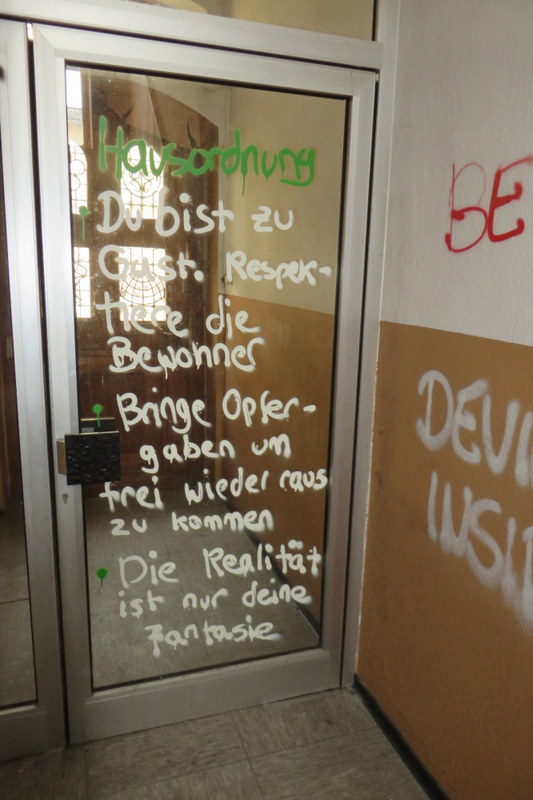 Hausordnung
Du bist zu
Gast. Respek-
tiere die
Bewohner
Bringe Opfer-
gaben um
frei wieder raus
zu kommen
Die Realität
ist nur deine
Fantasie
BE
DEVI
INSID